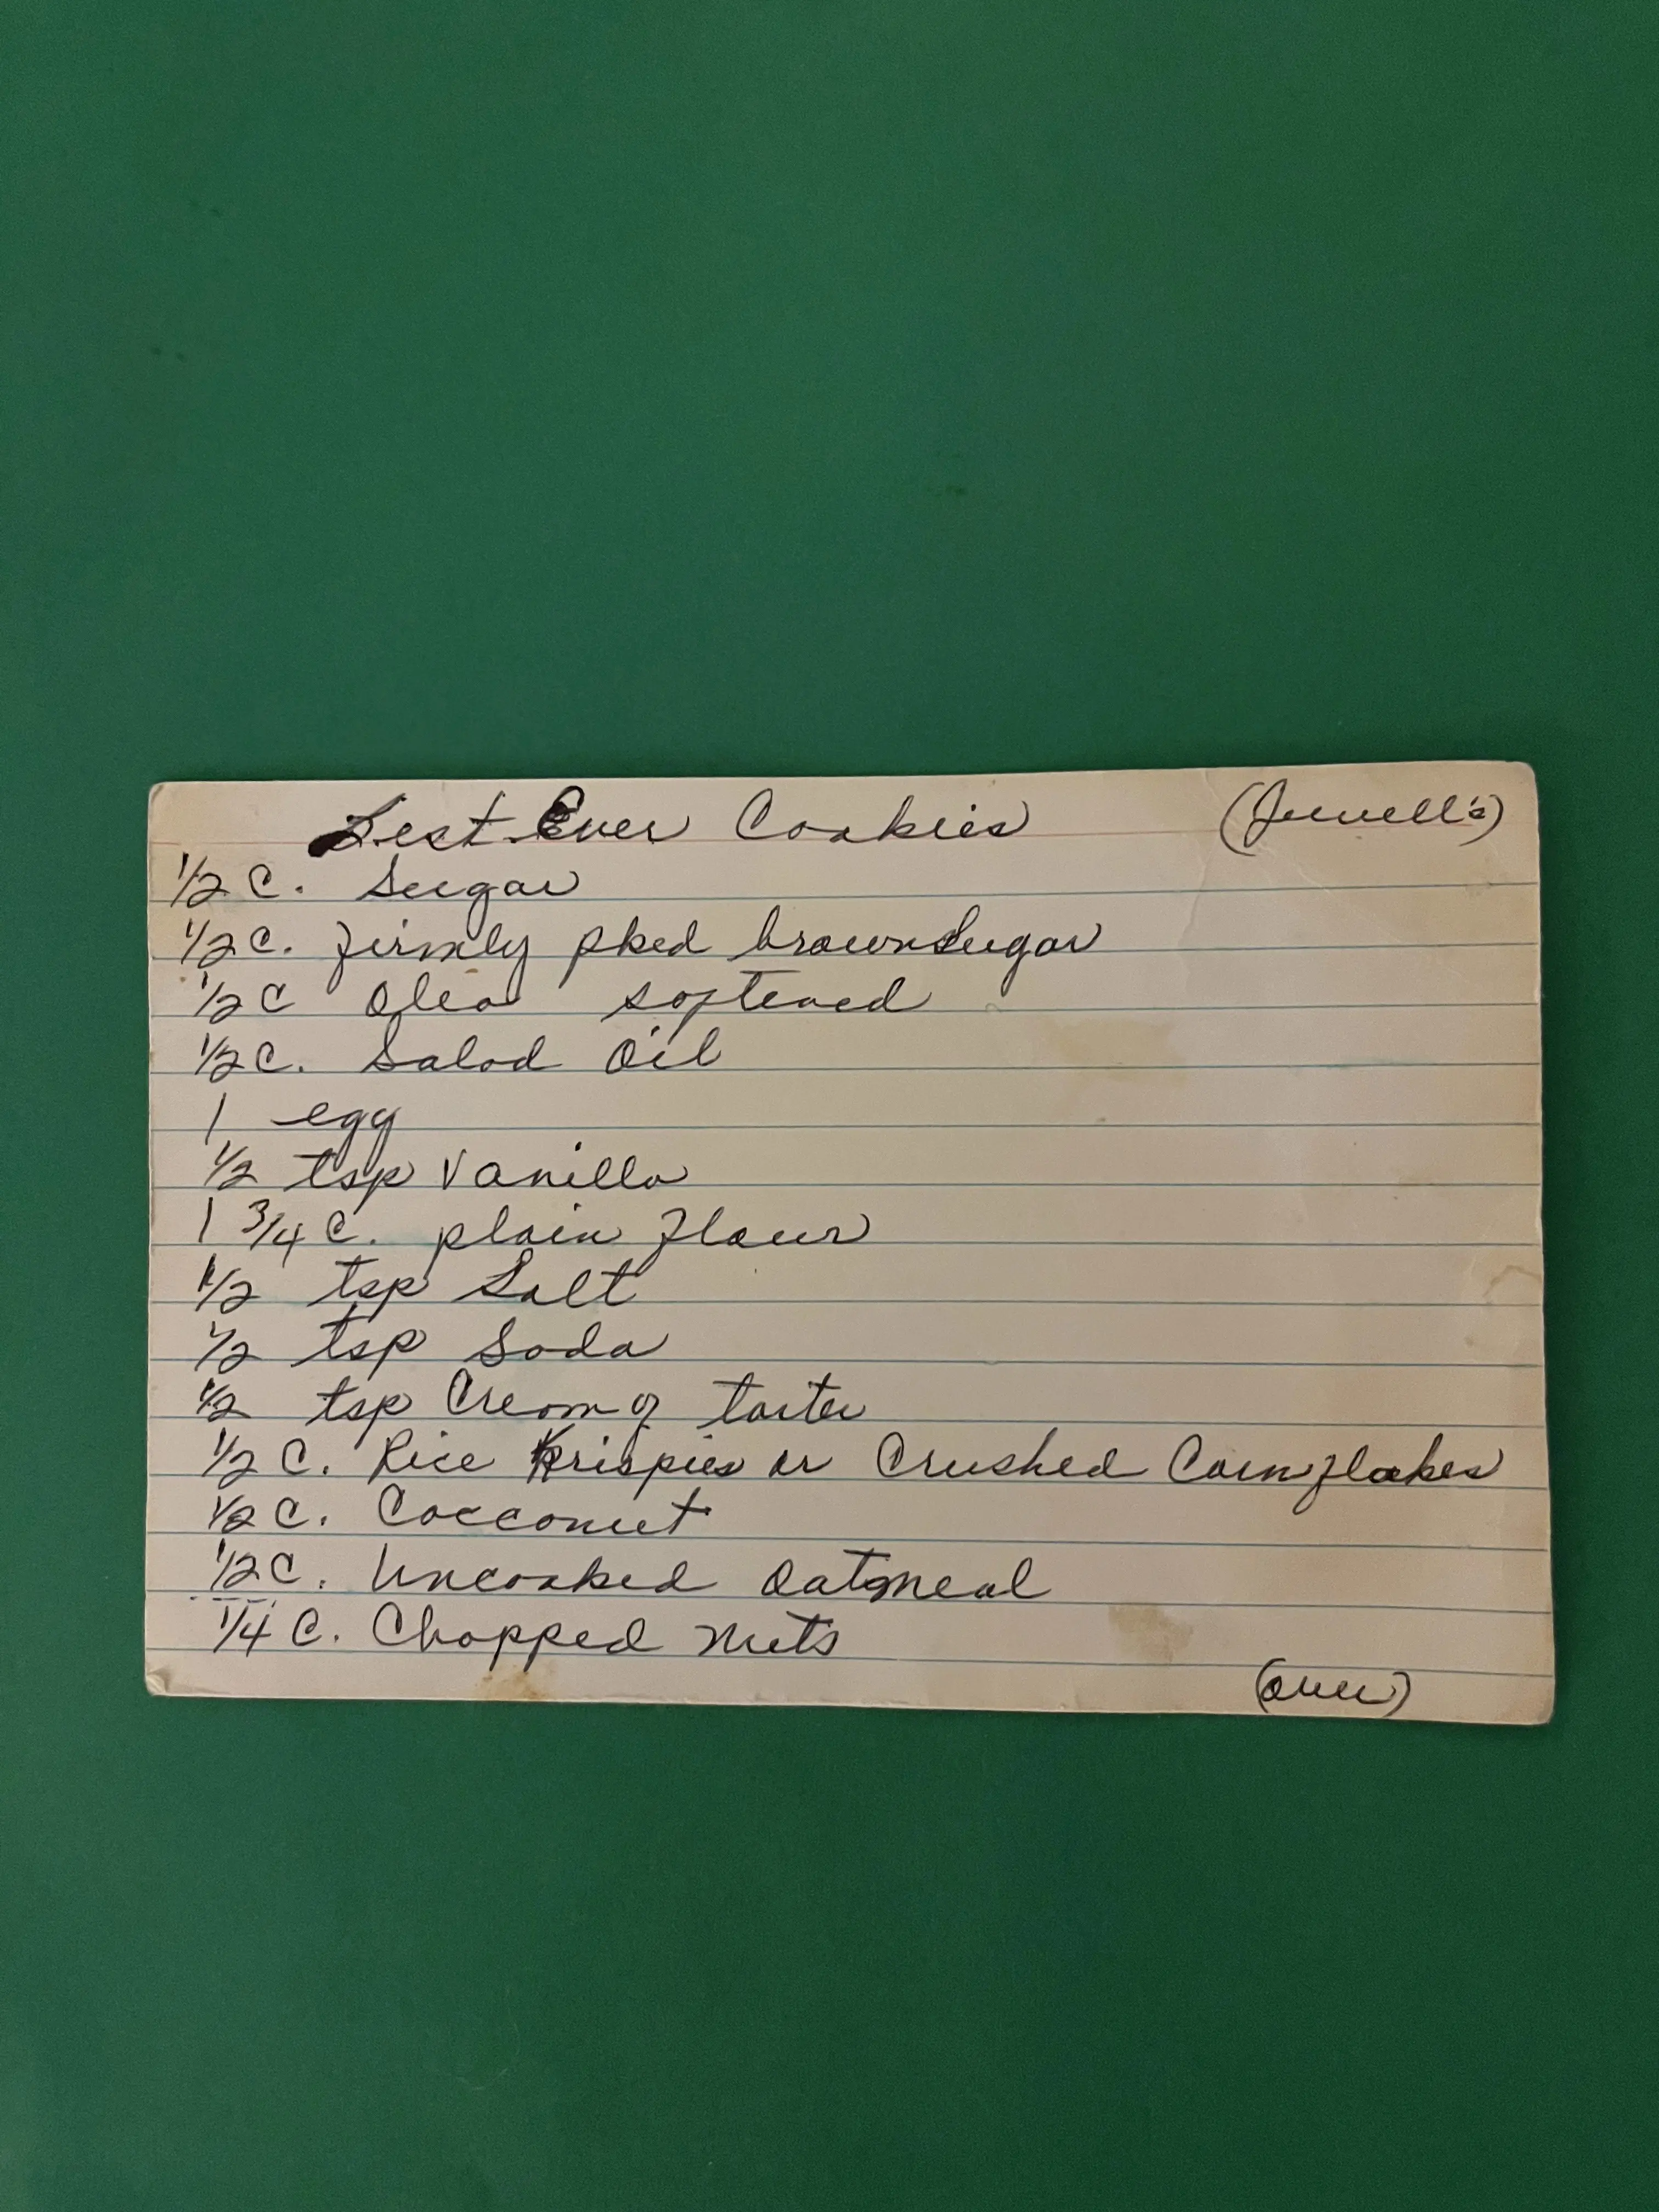 Best Ever Cookies (Jewell's)
1/2 C. Sugar
1/2 C. firmly pked brown Sugar
1/2 C Oleo softened
1/2 C. Salad Oil
1 egg
1/2 tsp Vanilla
1 3/4 C. plain flour
1/2 tsp Salt
1/2 tsp Soda
1/2 tsp Cream of tarter
1/2 C. Rice Krispies or Crushed Cornflakes
1/2 C. Cocconut
1/2 C. Uncooked Oatmeal
1/4 C. Chopped nuts
(over)